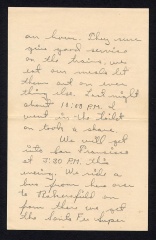 an hour. They sure
give good service
on the trains, we
eat our meals but
them out on every
thing else. Last night
about 10:00 PM. I
went in the toilet
an took a shave.
We will get
into San Francisco
at 5:30 PM. this
evening. We ride a
bus from here over
to Bakersfield an
from there we get
the Santa Fe Super